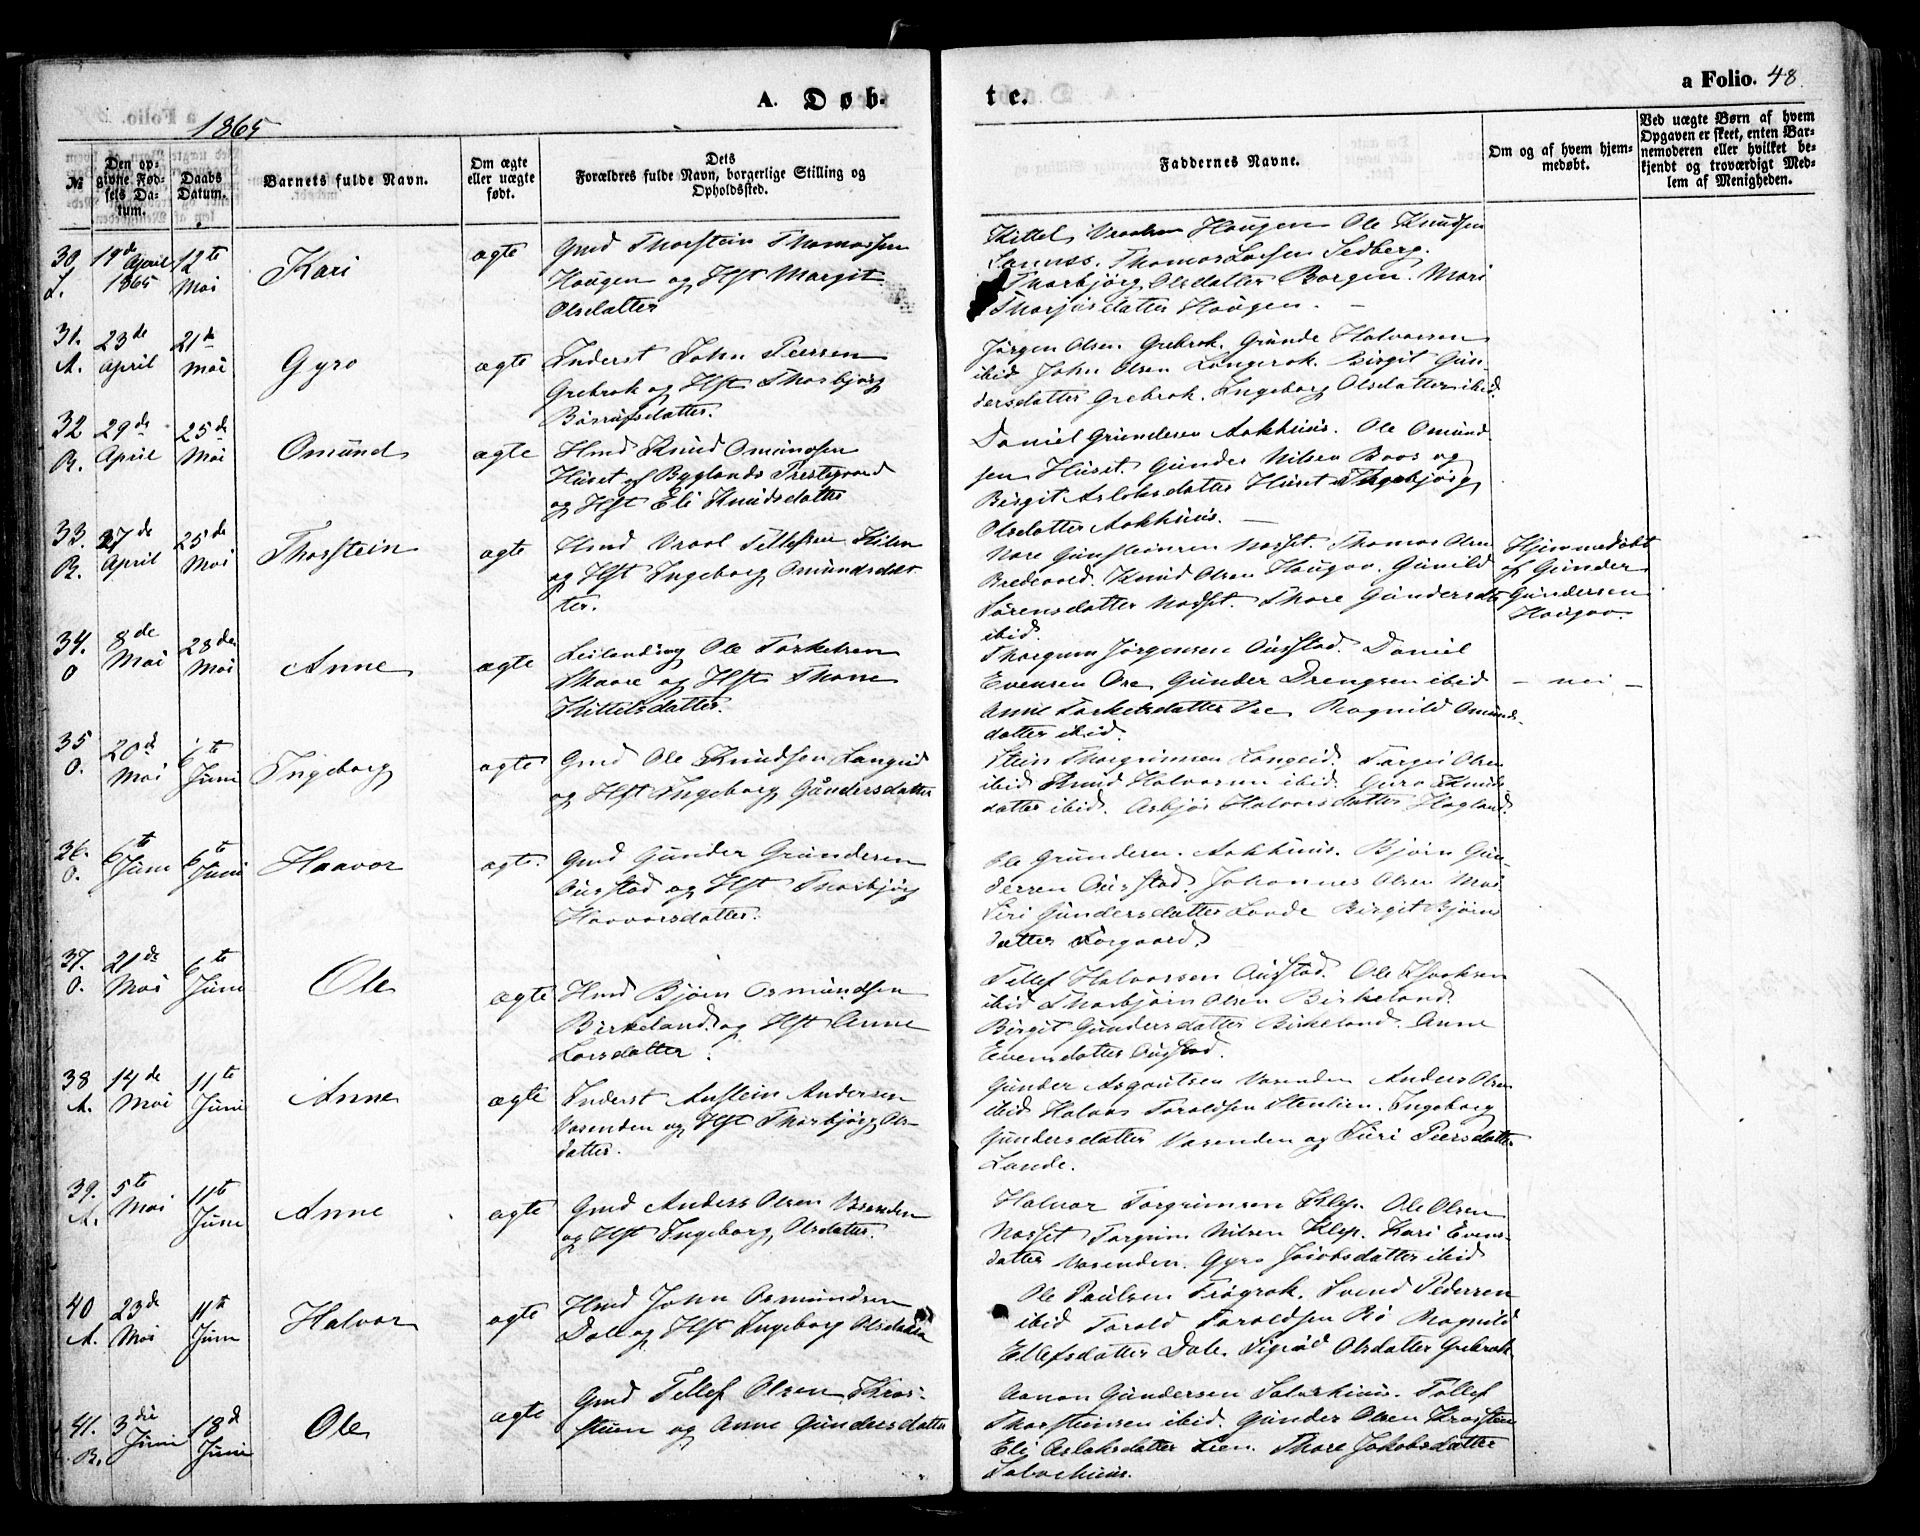 A. Døb-
te.
a Folio. 48.
1865
№
Den op-
givne Fød-
sels Da-
tum.
Daabs
Datum.
Barnets fulde Navn.
Om ægte
eller uægte
født.
Dets
Forældres fulde Navn, borgerlige Stilling og
Opholdssted.
Faddernes Navne.
Om og af hvem hjem-
medøbt.
Ved uægte Børn af hvem
Opgaven er skeet, enten Bar-
nemoderen eller hvilket be-
kjendt og troværdigt Med-
lem af Menigheden.
30 19de April 12te
L. 1865 Mai
Kari
ægte
Gmd Thorstein Thomassen
Hougen og Hst Margit
Olsdatter
Kittel Hougen Ole Knudsen
Thomas Sedberg.
Thorbjörg Olsdatter Borgen. Mari
Thorjusdatter Hougen. —
31. 23de 21de
A. April Mai
Gyro
ægte
Inderst John Peersen
Grebrok og Hst Thorbjörg
Jörgen Olsen Grebrok. Gunde Halvorsen
ibid John Olsen Langerok. Birgit Gun-
dersdatter Grebrok. Ingeborg Olsdatter ibid.
32 29de 25de
B. April Mai
Omund
ægte
Hmd Knud Omundsen
Huset af Byglands Prestegaard
og Hst Eli Knudsdatter
Daniel Gundersen Aakhuus. Ole Omund-
sen Huset. Gunder Nilsen Boos og
Birgit Aslaksdatter Huset Thorbjörg
Olsdatter Aakhuus. —
33. 27de 25de
B. April Mai
Thorstein
ægte
Hmd Vraal Tellefsen
og Hst Ingeborg Omundsdat-
ter.
Nare Gunsteinsen Nosset. Thomas Olsen
Bredvold. Knud Olsen Haugaa. Gunild
Sørensdatter Nosset. Thore Gundersdtr
ibid.
Hjemmedøbt
af Gunder
Gundersen
Hougaa.
34. 8de 28de
O Mai Mai
Anne
ægte
Leilending Ole Torkelsen
Skaare og Hst Thone
Kittelsdatter.
Thorgrim Jörgensen Ousstad. Daniel
Evensen Ose Gunder Drengsen ibid
Anne Torkelsdatter Ose Ragnild Omunds-
datter ibid.
— nei —
35 20de 6te
O. Mai Juni
Ingeborg
ægte
Gmd Ole Knudsen Langeid
og Hst Ingeborg Gundersdatter
Stein Thorgrimsen Langeid. Torgei Olsen
ibid Knud Halvorsen ibid. Guro Knuds-
datter ibid. Asbjør Halvorsdatter Hagland.
36. 6te 6te
O. Juni Juni
Haavor
ægte.
Gmd Gunder Gundersen
Ousstad og Hst Thorbjörg
Haavorsdatter.
Ole Gundersen. Aakhuus. Bjørn Gun-
dersen Ousstad. Johannes Olsen Moi
Siri Gundersdatter Lande Birgit Bjørns
datter
37. 21de 6te
O. Mai Juni
Ole
ægte
Hmd Bjørn Osmundsen
Birkeland og Hst Anne
Larsdatter.
Tellef Halvorsen Ousstad. Ole
ibid Thorbjørn Olsen Birkeland.
Birgit Gundersdatter Birkeland. Anne
Evensdatter Ousstad.
38 14de 11te
A. Mai Juni
Anne
ægte
Inderst Anstein Andersen
Vasenden og Hst Thorbjörg Ols-
datter.
Gunder Asgautsen Vasenden Anders Olsen
ibid Halvor Taraldsen Stenlien. Ingeborg
Gundersdatter Vasenden og Suri Peersdatter
Lande.
39. 5te 11te
A. Mai Juni
Anne
ægte
Gmd Anders Olsen
og Hst Ingeborg Olsdatter.
Halvor Torgrimsen Klep. Ole Olsen
Nosset Torgrim Nilsen Klep. Kari Evens-
datter Vasenden. Gyro Jacobsdatter ibid
40 23de 11te
A. Mai Juni
Halvor
ægte
Hmd John Osmundsen
Dale og Hst Ingeborg Olsdatter
Ole Paulsen Frøgrok. Svend Pedersen
ibid Tarald Taraldsen Rö Ragnild
Ellefsdatter Dale. Sigrid Olsdatter Grebrok
41. 3die 18d
B. Juni Juni
Ole
ægte
Gmd Tellef Olsen
og Anne Gundersdatter
Aanon Gundersen Tellef
Thorsteinsen ibid. Gunder Olsen
Eli Aslaksdatter Lien. Thore Jakobsdatter